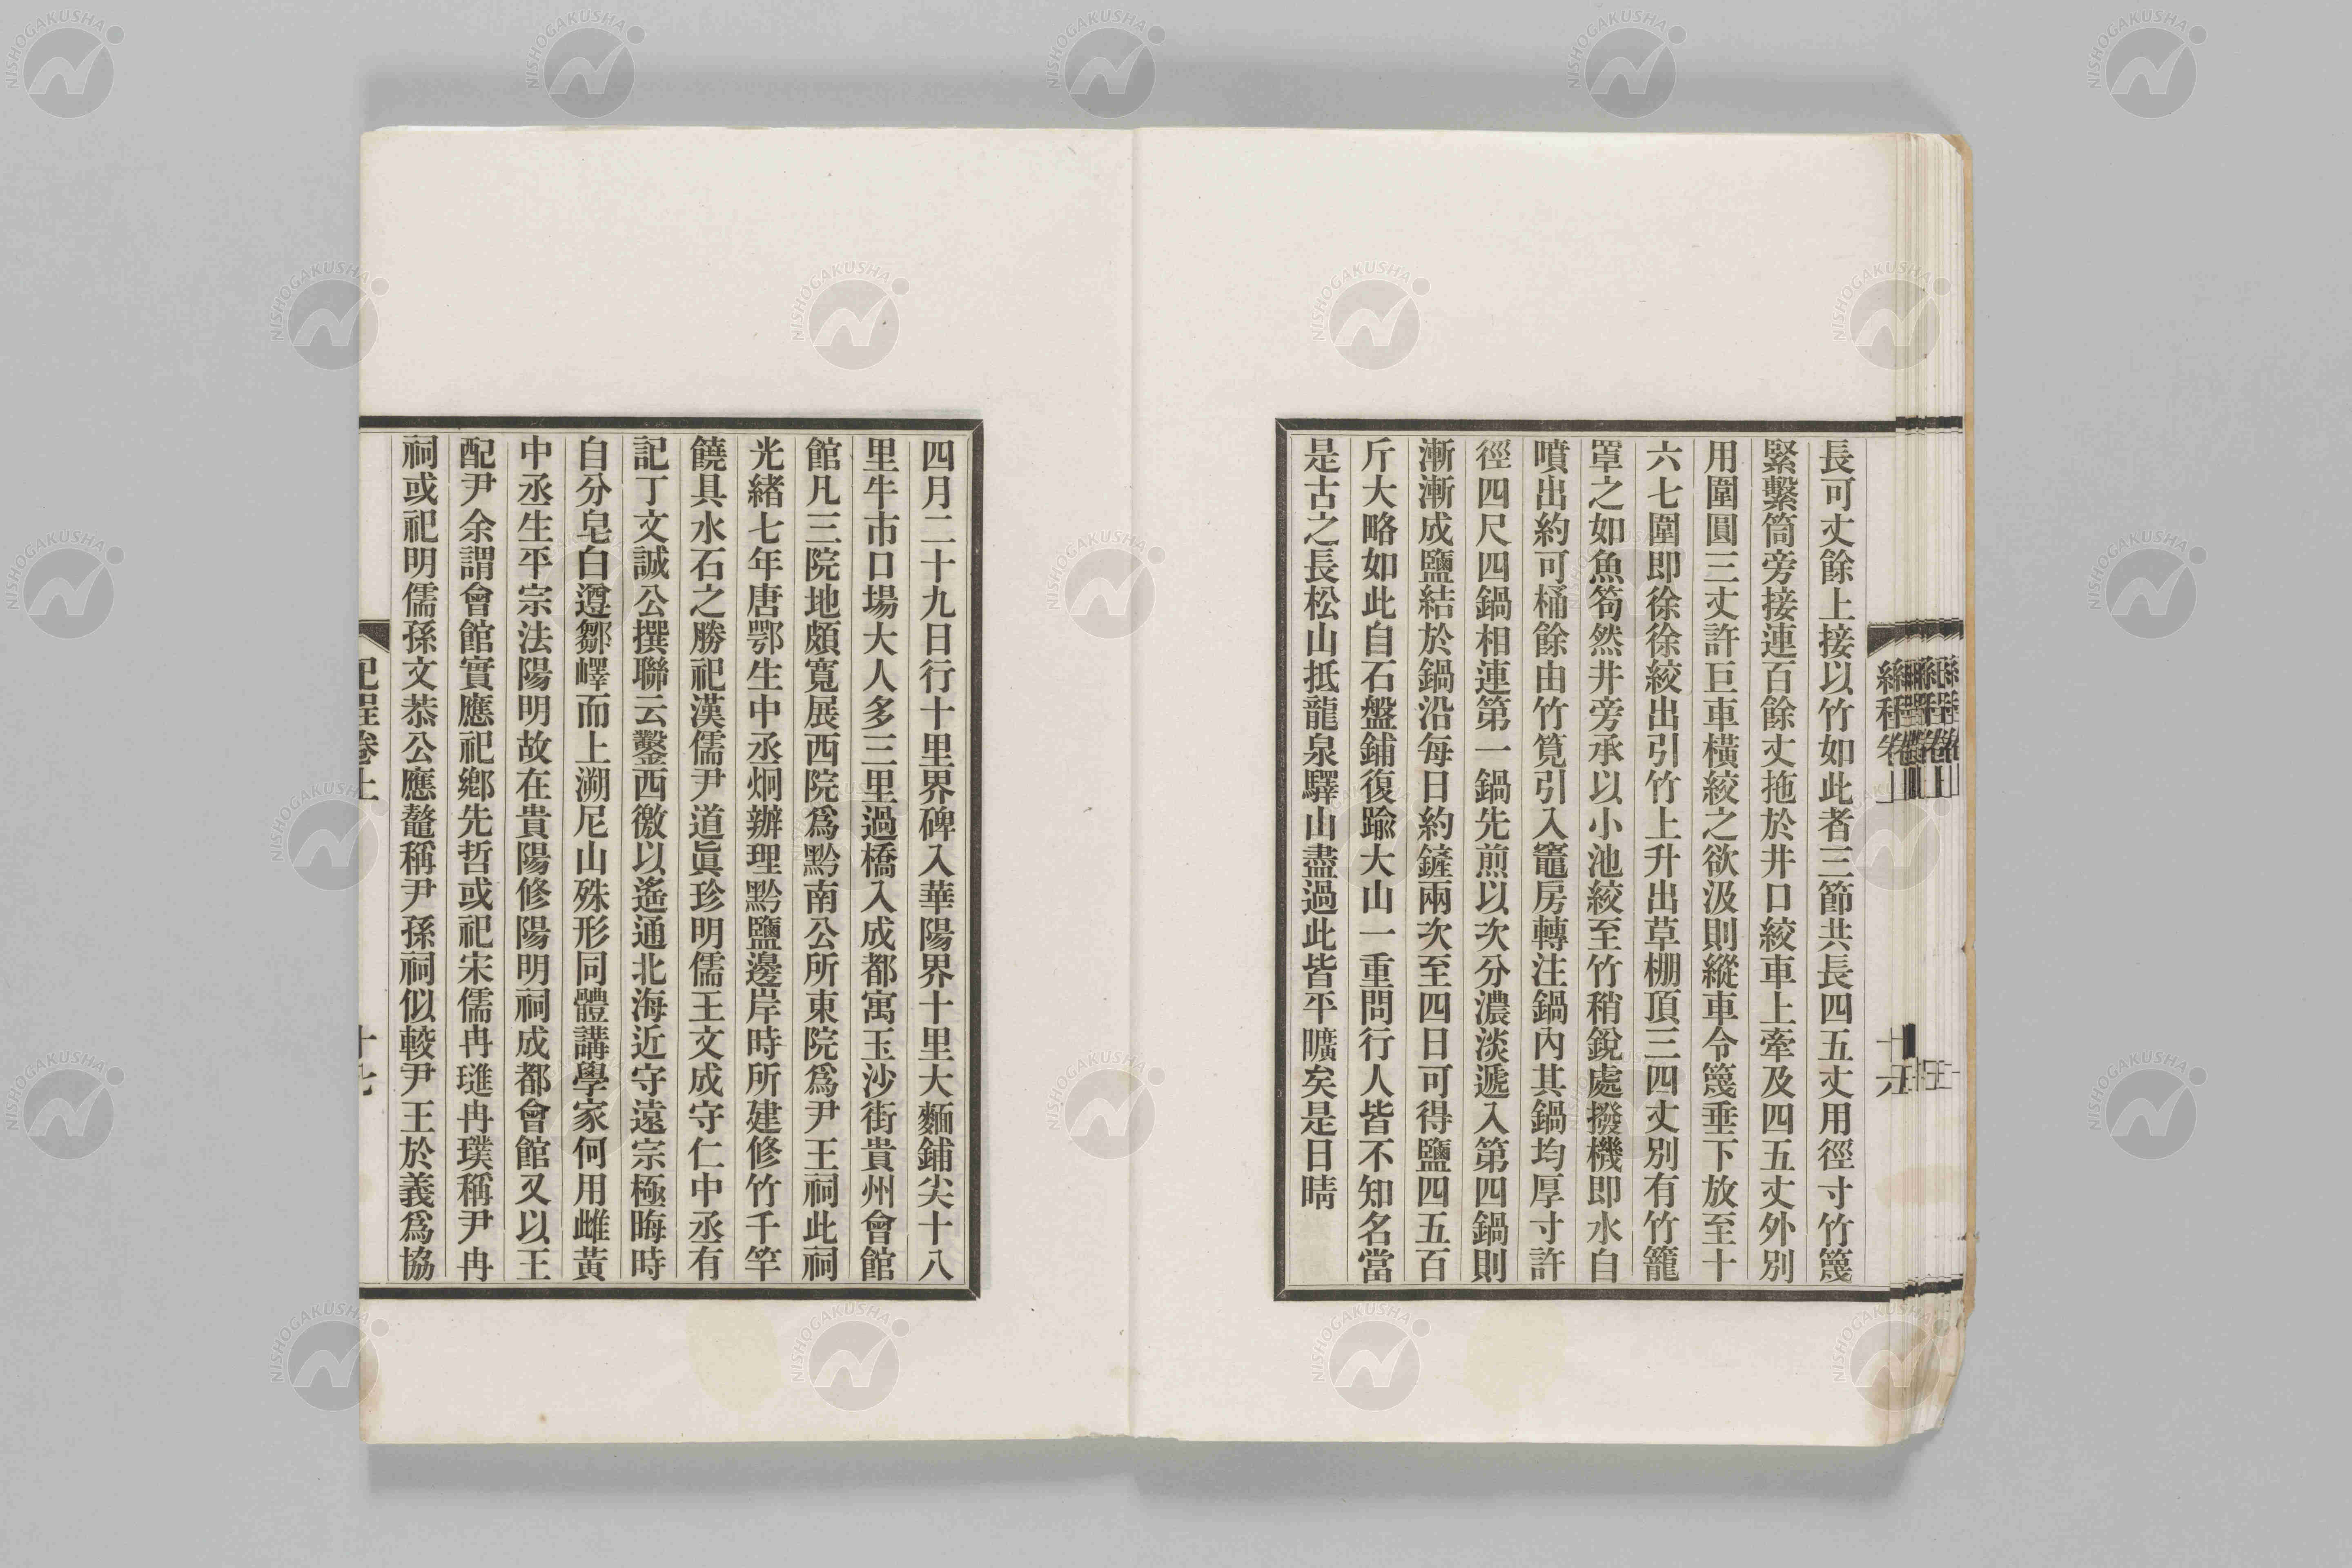 長可丈餘上接以竹如此者三節共長四五丈用徑寸竹篾
緊繫筒旁接連百餘丈拖於井口絞車上牽及四五丈外別
用圍圓三丈許巨車橫絞之欲汲則縱車令篾垂下放至十
六七圍即徐徐絞出引竹上升出草棚頂三四丈別有竹籠
罩之如魚笱然井旁承以小池絞至竹稍銳處撥機即水自
噴出約可桶餘由竹筧引入竈房轉注鍋內其鍋均厚寸許
徑四尺四鍋相連第一鍋先煎以次分濃淡遞入第四鍋則
漸漸成鹽結於鍋沿每日約鏟兩次至四日可得鹽四五百
斤大略如此自石盤鋪復踰大山一重問行人皆不知名當
是古之長松山抵龍泉驛山盡過此皆平曠矣是日晴
四月二十九日行十里界碑入華陽界十里大麵鋪尖十八
里牛市口場大人多三里過橋入成都寓玉沙街貴州會館
館凡三院地頗寬展西院爲黔南公所東院爲尹王祠此祠
光緒七年唐鄂生中丞炯辦理黔鹽邊岸時所建修竹千竿
饒具水石之勝祀漢儒尹道眞珍明儒王文成守仁中丞有
記丁文誠公撰聯云鑿西徼以遙通北海近守遠宗極晦時
自分皂白遵鄒嶧而上溯尼山殊形同體講學家何用雌黃
中丞生平宗法陽明故在貴陽修陽明祠成都會館又以王
配尹余謂會館實應祀鄉先哲或祀宋儒冉璡冉璞稱尹冉
祠或祀明儒孫文恭公應鼇稱尹孫祠似較尹王於義爲協
紀程卷上
十七
NISHOGAKUSHA